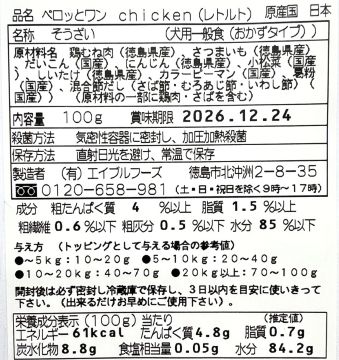 品名 ペロッとワン chicken(レトルト) 原産国 日本
名称 そうざい (犬用一般食(おかずタイプ))
原材料名 鶏むね肉(徳島県産)、さつまいも(徳島県産)
、だいこん(国産)、にんじん(徳島県産)、小松菜(国産
)、しいたけ(徳島県産)、カラーピーマン(国産)、葛粉
(国産)、混合節だし(さば節・むろあじ節・いわし節)(
国産)) (原材料の一部に鶏肉・さばを含む)
内容量 100g 賞味期限 2026.12.24
殺菌方法 気密性容器に密封し、加圧加熱殺菌
保存方法 直射日光を避け、常温で保存
製造者 (有)エイブルフーズ 徳島市北沖洲2-8-35
0120-658-981 (土・日・祝日を除く9時~17時)
成分 粗たんぱく質 4 %以上 脂質 1.5 %以上
粗繊維 0.6%以下 粗灰分 0.5 %以下 水分 85 %以下
与え方 (トッピングとして与える場合の参考値)
●~5kg:10~20g ●5~10kg:20~40g
●10~20kg:40~70g ●20kg以上:70~100g
開封後は必ず密封し冷蔵庫で保存し、3日以内を目安に使いきって
下さい。(出来るだけお早めにご使用下さい)。
栄養成分表示(100g)当たり (推定値)
エネルギー61kcal たんぱく質4.8g 脂質0.7g
炭水化物8.8g 食塩相当量0.05g 水分 84.2g